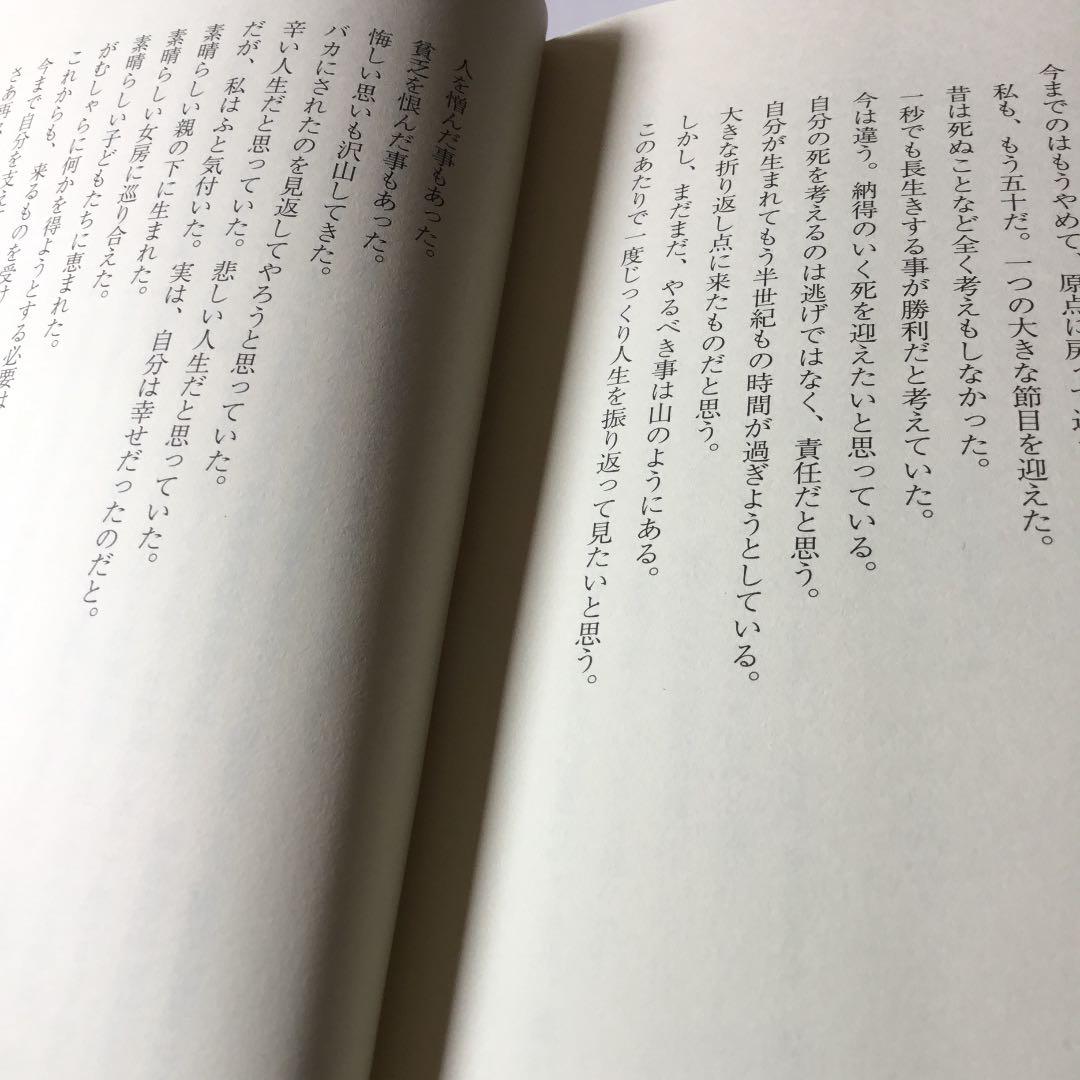 今までのはもうやめて、原点に戻って
私も、もう五十だ。一つの大きな節目を迎えた。
昔は死ぬことなど全く考えもしなかった。
一秒でも長生きする事が勝利だと考えていた。
今は違う。納得のいく死を迎えたいと思っている。
自分の死を考えるのは逃げではなく、責任だと思う。
自分が生まれてもう半世紀もの時間が過ぎようとしている。
大きな折り返し点に来たものだと思う。
しかし、まだまだ、やるべき事は山のようにある。
このあたりで一度じっくり人生を振り返って見たいと思う。
人を憎んだ事もあった。
貧乏を恨んだ事もあった。
悔しい思いも沢山してきた。
バカにされたのを見返してやろうと思っていた。
辛い人生だと思っていた。悲しい人生だと思っていた。
だが、私はふと気付いた。実は、自分は幸せだったのだと。
素晴らしい親の下に生まれた。
素晴らしい女房に巡り合えた。
素晴らしい子どもたちに恵まれた。
がむしゃらに何かを得ようとする必要は
これからも、来るものを受け
今まで自分を支えて
さあ再